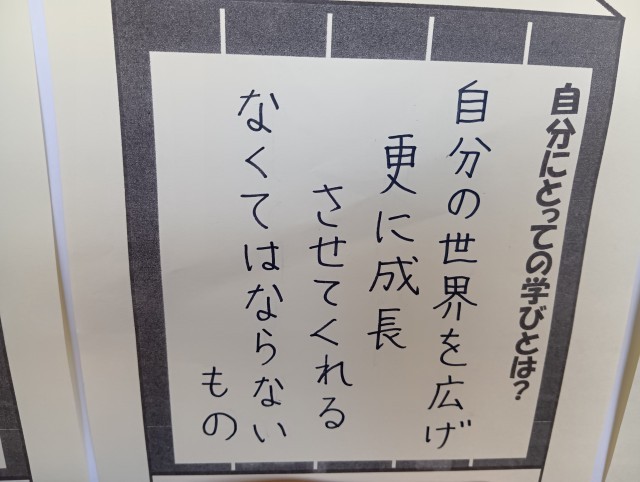 自分にとっての学びとは?
自分の世界を広げ
更に成長
させてくれる
なくてはならない
もの